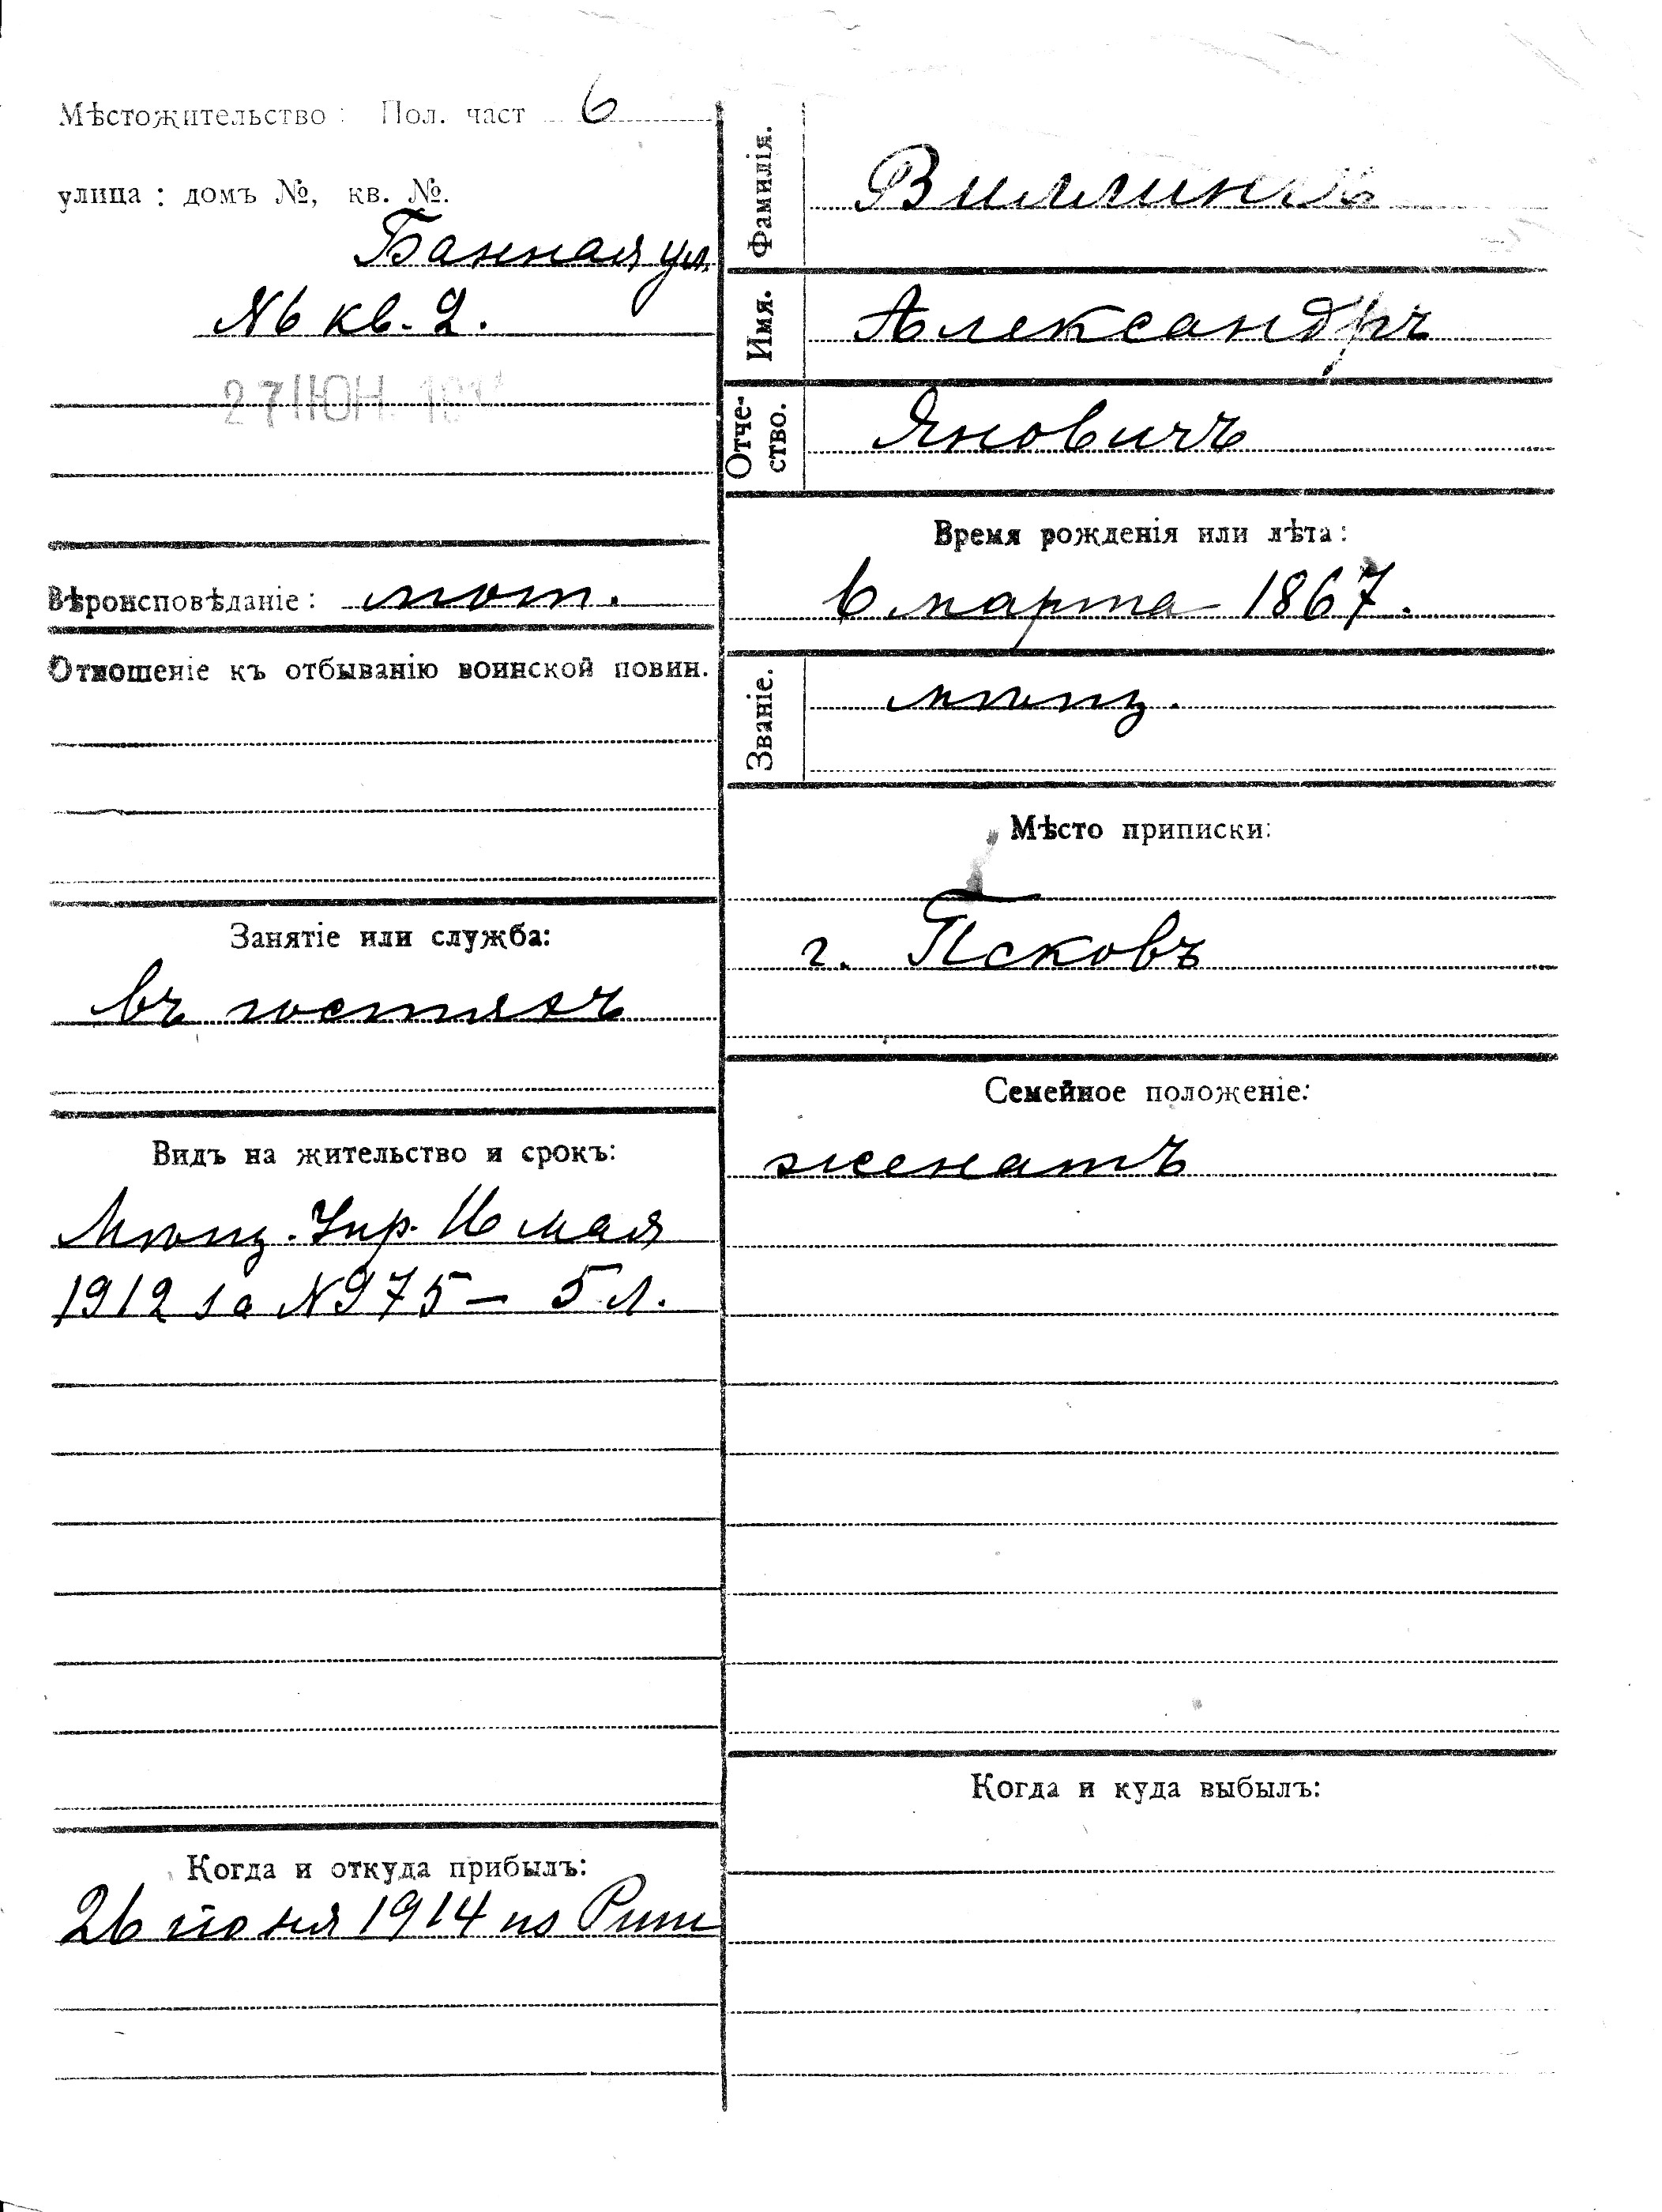 Мѣстожительство: Пол. част 6
улица: домъ №, кв. №.
Банная ул.
№6 кв. 2.
27 IЮН. 191
Вѣроисповѣданіе: лют.
Отношеніе къ отбыванію воинской повин.
Занятіе или служба:
въ гостяхъ
Видъ на жительство и срокъ:
Мѣщ. Упр. 16 мая
1912 за №975 – 5 л.
Когда и откуда прибылъ:
26 іюня 1914 из Риги
Фамилія.
Имя. Александръ
Отче-
ство. Яновичъ
Время рожденія или лѣта:
6 марта 1867.
Званіе. мѣщ.
Мѣсто приписки:
г. Псковъ
Семейное положеніе:
женатъ
Когда и куда выбылъ: